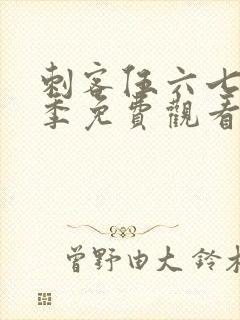 刺客伍六七
季免費觀看
曾野由大 鈴木